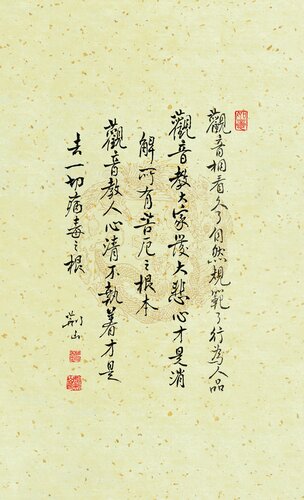 觀音相看久了自然規範了行為人品
觀音教大家發大悲心才是消
解所有苦厄之根本
觀音教人心清不執著才是
去一切病毒之根
荊山